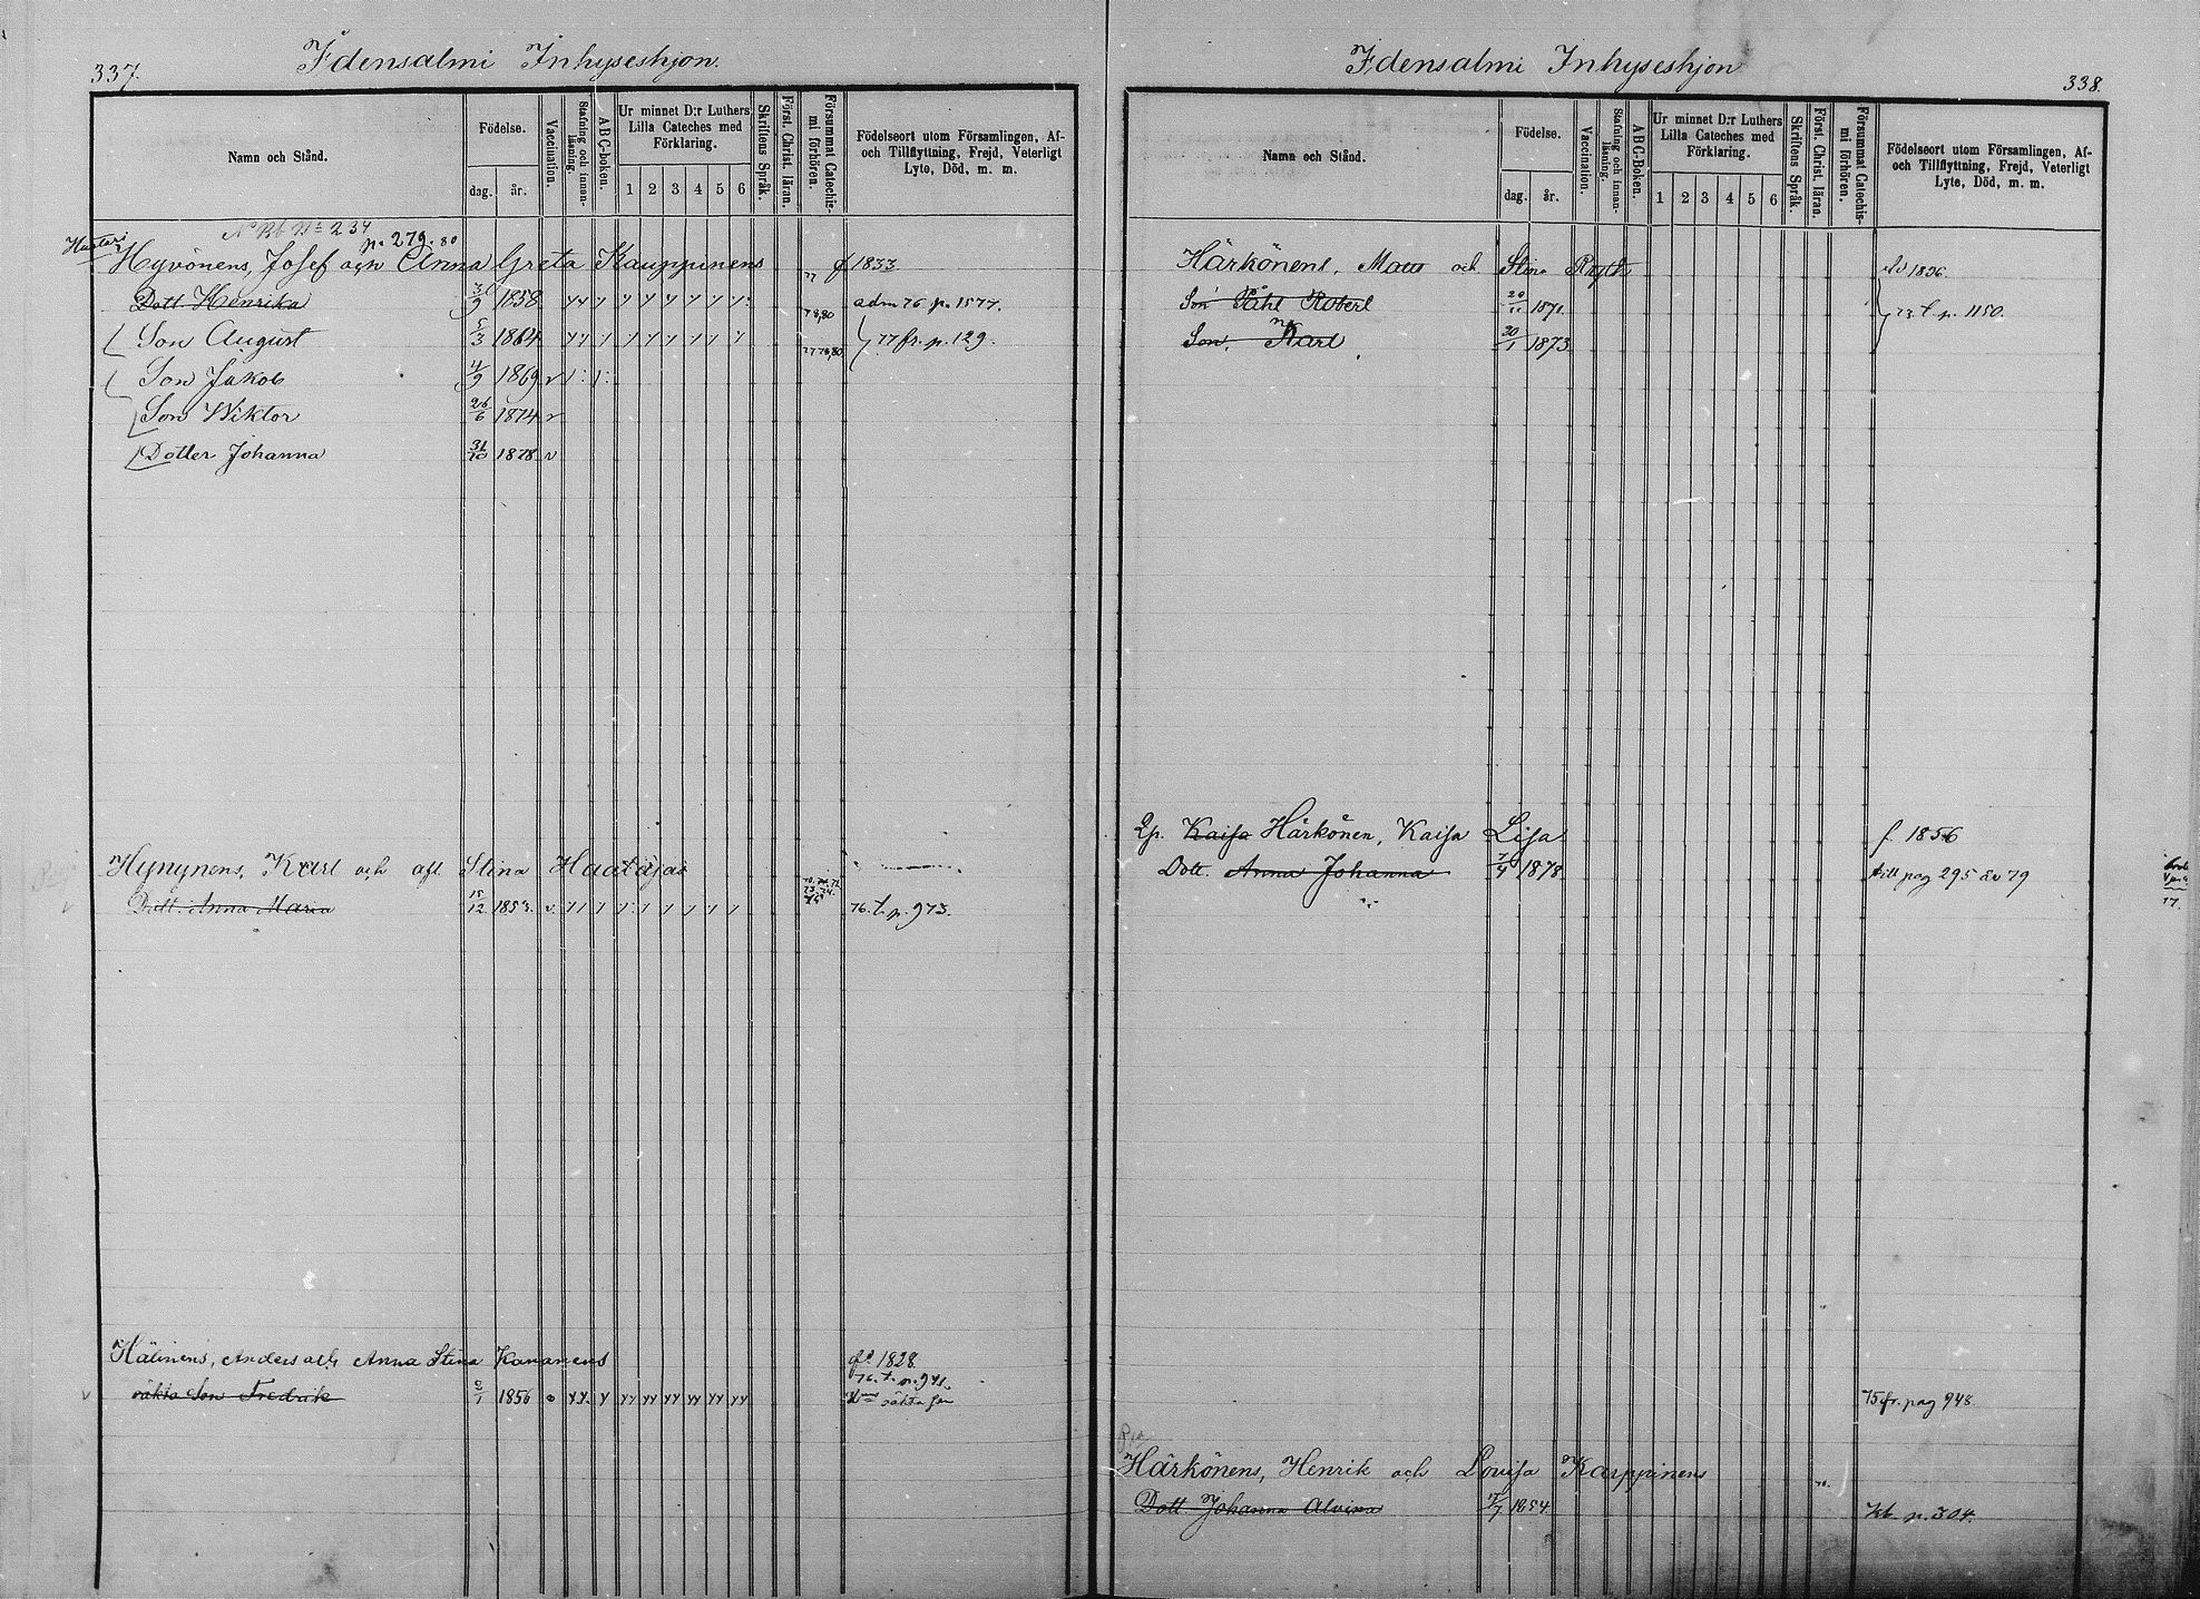 337.
Idensalmi Inhyseshjon.
Namn och Stånd.
Födelse.
dag.
år.
Vaccination.
Stafning och innanläsning.
ABC-boken.
Ur minnet D:r Luthers Lilla Cateches med Förklaring.
1 2 3 4 5 6
Skriftens Språk.
Först. Christ. läran.
Försummat Catechismi förhören.
Födelseort utom Församlingen, Af- och Tillflyttning, Frejd, Veterligt Lyte, Död, m. m.
N Bb No 234
p. 279. 80
Hyvönens, Josef och Anna Greta Kauppinens 77 f 1833
Dott Henrika 3/9 1858 78,80 adm 76 p. 1577.
Son August 5/3 1864 77 78,80 77 fr. p. 129.
Son Jakob 4/9 1869 v
Son Wiktor 26/6 1874 v
Dotter Johanna 31/10 1878 v
Hynynens, Karl och aft Stina Haatajas
Dott. Anna Maria 15/12 1853. v. 76. t. p. 973.
Hälinens, Anders och Anna Stina Kananens f. 1828
76. t. p. 941.
oäkta Son Fredrik 2/1 1856 oäkta son
Idensalmi Inhyseshjon
338.
Namn och Stånd.
Födelse.
dag.
år.
Vaccination.
Stafning och innanläsning.
ABC-Boken.
Ur minnet D:r Luthers Lilla Cateches med Förklaring.
1 2 3 4 5 6
Skriftens Språk.
Först. Christ. läran.
Försummat Catechismi förhören.
Födelseort utom Församlingen, Af- och Tillflyttning, Frejd, Veterligt Lyte, Död, m. m.
Härkönens, Maus och Stina Ryth 1836
Son Påhl Robert 20/11 1871. 73. t. p. 1150.
Son, Karl 30/1 1873
Ip. Kaisa Härkönen, Kaisa Lisa f. 1856
Dott. Anna Johanna 7/4 1878 till pag 295 år 79
75 fr. pag 948.
Härkönens, Henrik och Lovisa Karppinens
Dott. Johanna Alvina 17/7 1854. kb. p. 304.